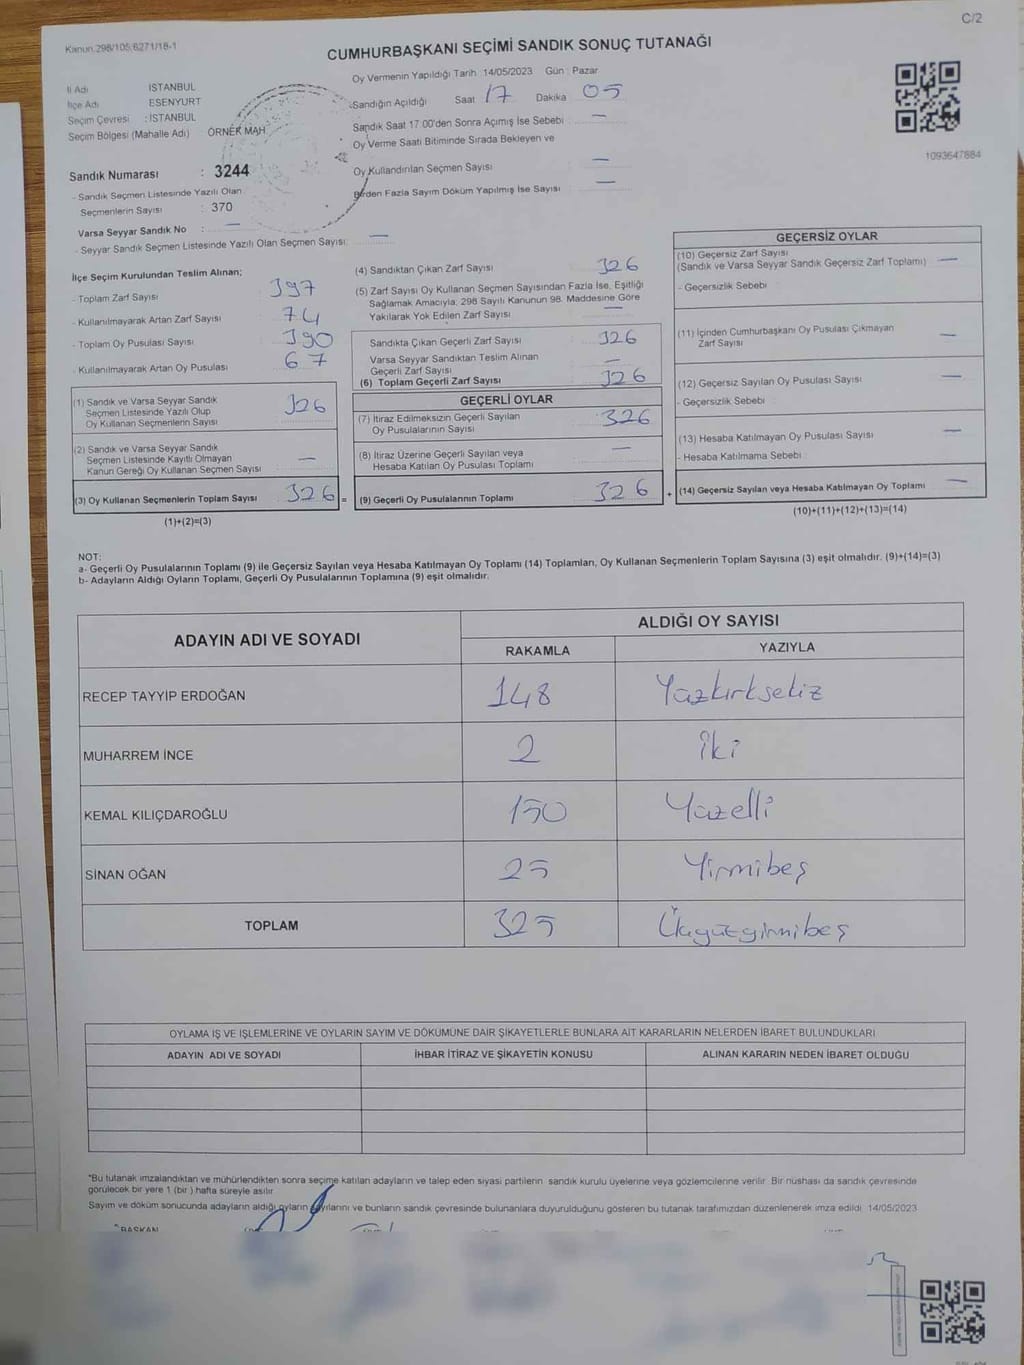 C/2
Kanun.298/105,6271/18-1
CUMHURBAŞKANI SEÇİMİ SANDIK SONUÇ TUTANAĞI
Oy Vermenin Yapıldığı Tarih :14/05/2023 Gün : Pazar
İl Adı İSTANBUL
İlçe Adı ESENYURT
Seçim Çevresi : İSTANBUL
Seçim Bölgesi (Mahalle Adı) ÖRNEK MAH.
Sandığın Açıldığı Saat 17 Dakika 05
Sandık Saat 17.00'den Sonra Açımış İse Sebebi : —
Oy Verme Saati Bitiminde Sırada Bekleyen ve
Oy Kullandırılan Seçmen Sayısı —
Birden Fazla Sayım Döküm Yapılmış İse Sayısı —
1093647884
Sandık Numarası : 3244
- Sandık Seçmen Listesinde Yazılı Olan
Seçmenlerin Sayısı : 370
Varsa Seyyar Sandık No : —
- Seyyar Sandık Seçmen Listesinde Yazılı Olan Seçmen Sayısı: —
İlçe Seçim Kurulundan Teslim Alınan;
- Toplam Zarf Sayısı 397
- Kullanılmayarak Artan Zarf Sayısı 74
- Toplam Oy Pusulası Sayısı 390
- Kullanılmayarak Artan Oy Pusulası 67
(1) Sandık ve Varsa Seyyar Sandık
Seçmen Listesinde Yazılı Olup
Oy Kullanan Seçmenlerin Sayısı 326
(2) Sandık ve Varsa Seyyar Sandık
Seçmen Listesinde Kayıtlı Olmayan
Kanun Gereği Oy Kullanan Seçmen Sayısı —
(3) Oy Kullanan Seçmenlerin Toplam Sayısı 326 =
(1)+(2)=(3)
(4) Sandıktan Çıkan Zarf Sayısı 326
(5) Zarf Sayısı Oy Kullanan Seçmen Sayısından Fazla İse, Eşitliği
Sağlamak Amacıyla, 298 Sayılı Kanunun 98. Maddesine Göre
Yakılarak Yok Edilen Zarf Sayısı —
Sandıkta Çıkan Geçerli Zarf Sayısı 326
Varsa Seyyar Sandıktan Teslim Alınan
Geçerli Zarf Sayısı —
(6) Toplam Geçerli Zarf Sayısı 326
GEÇERLİ OYLAR
(7) İtiraz Edilmeksizin Geçerli Sayılan
Oy Pusulalarının Sayısı 326
(8) İtiraz Üzerine Geçerli Sayılan veya
Hesaba Katılan Oy Pusulası Toplamı —
(9) Geçerli Oy Pusulalarının Toplamı 326 +
GEÇERSİZ OYLAR
(10) Geçersiz Zarf Sayısı
(Sandık ve Varsa Seyyar Sandık Geçersiz Zarf Toplamı) —
- Geçersizlik Sebebi
(11) İçinden Cumhurbaşkanı Oy Pusulası Çıkmayan
Zarf Sayısı —
(12) Geçersiz Sayılan Oy Pusulası Sayısı —
- Geçersizlik Sebebi
(13) Hesaba Katılmayan Oy Pusulası Sayısı —
- Hesaba Katılmama Sebebi
(14) Geçersiz Sayılan veya Hesaba Katılmayan Oy Toplamı —
(10)+(11)+(12)+(13)=(14)
NOT:
a- Geçerli Oy Pusulalarının Toplamı (9) ile Geçersiz Sayılan veya Hesaba Katılmayan Oy Toplamı (14) Toplamları, Oy Kullanan Seçmenlerin Toplam Sayısına (3) eşit olmalıdır. (9)+(14)=(3)
b- Adayların Aldığı Oyların Toplamı, Geçerli Oy Pusulalarının Toplamına (9) eşit olmalıdır.
ADAYIN ADI VE SOYADI ALDIĞI OY SAYISI
RAKAMLA YAZIYLA
RECEP TAYYIP ERDOĞAN 148 Yüzkırksekiz
MUHARREM İNCE 2 iki
KEMAL KILIÇDAROĞLU 150 Yüzelli
SİNAN OĞAN 25 Yirmibeş
TOPLAM 325 Üçyüzyirmibeş
OYLAMA İŞ VE İŞLEMLERİNE VE OYLARIN SAYIM VE DÖKÜMÜNE DAİR ŞİKAYETLERLE BUNLARA AİT KARARLARIN NELERDEN İBARET BULUNDUKLARI
ADAYIN ADI VE SOYADI İHBAR İTİRAZ VE ŞİKAYETİN KONUSU ALINAN KARARIN NEDEN İBARET OLDUĞU
*Bu tutanak imzalandıktan ve mühürlendikten sonra seçime katılan adayların ve talep eden siyasi partilerin sandık kurulu üyelerine veya gözlemcilerine verilir. Bir nüshası da sandık çevresinde
görülecek bir yere 1 (bir ) hafta süreyle asılır.
Sayım ve döküm sonucunda adayların aldığı oyların sayılarını ve bunların sandık çevresinde bulunanlara duyurulduğunu gösteren bu tutanak tarafımızdan düzenlenerek imza edildi. 14/05/2023
BAŞKAN